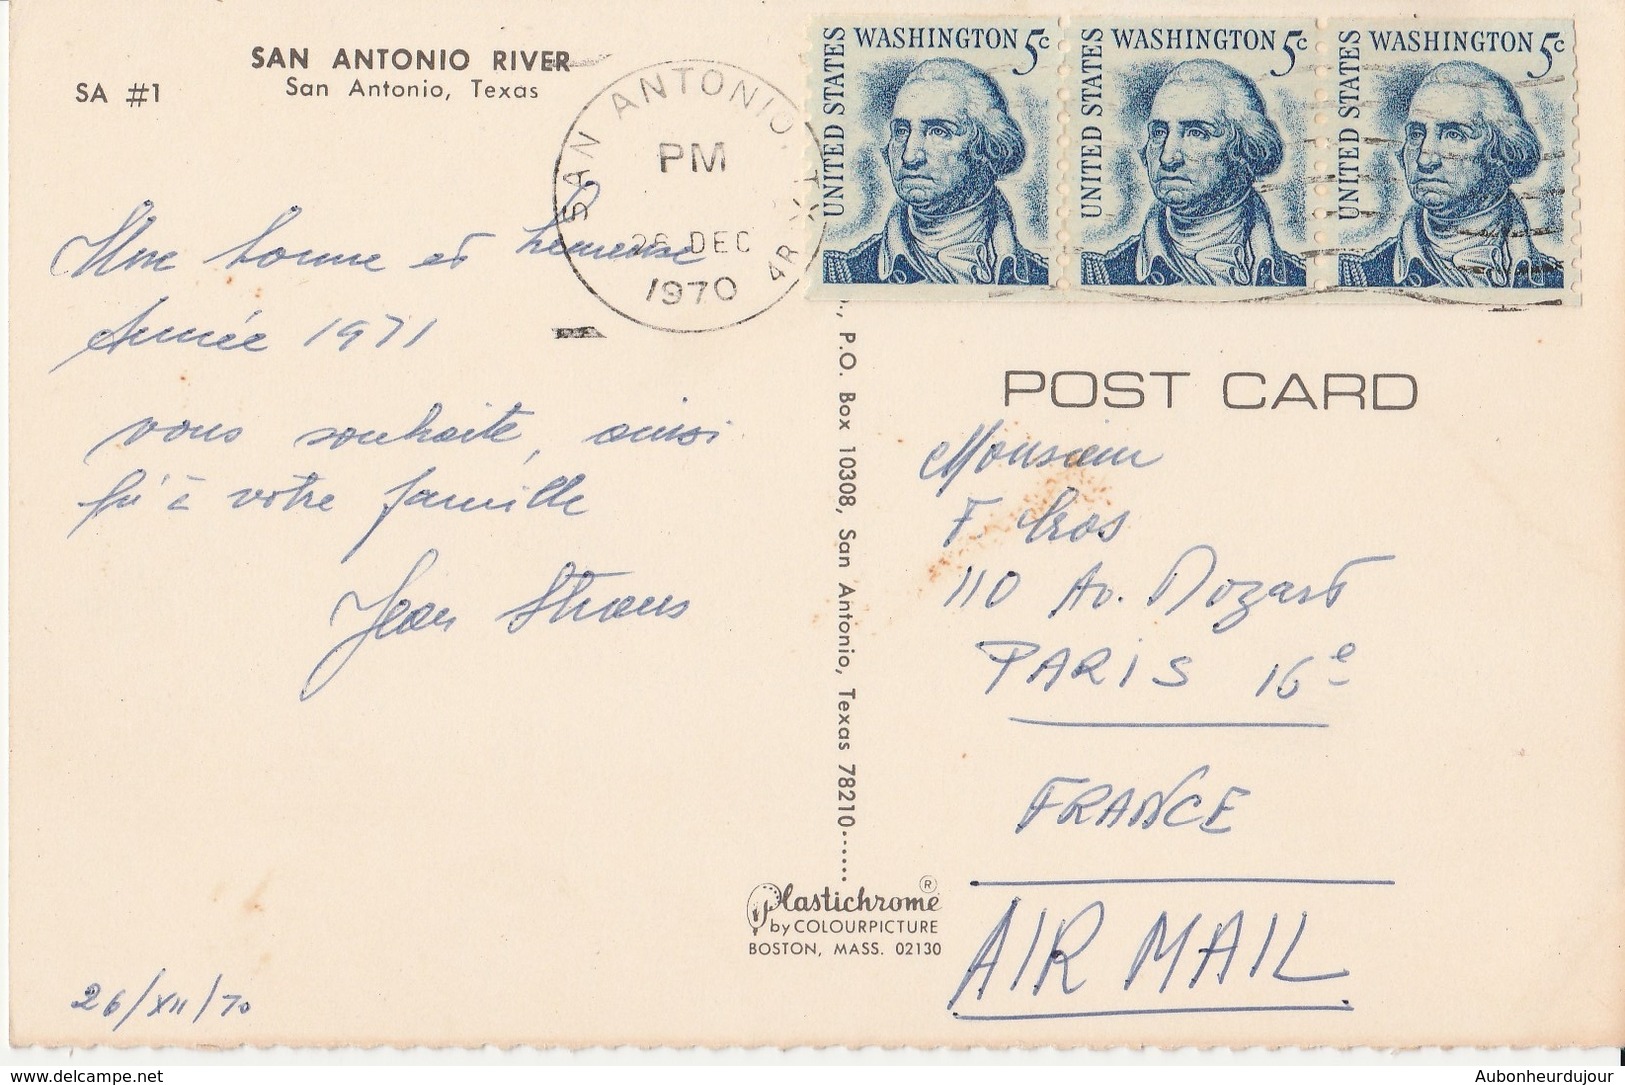 SAN ANTONIO RIVER
San Antonio, Texas
SA #1
SAN ANTONIO,
PM
26 DEC
1970
UNITED STATES WASHINGTON 5c
UNITED STATES WASHINGTON 5c
UNITED STATES WASHINGTON 5c
Une bonne et heureuse
Année 1971
vous souhaite, ainsi
qu'à votre famille
Jean
26/XII/70
P.O. Box 10308, San Antonio, Texas 78210
Plastichrome ®
by COLOURPICTURE
BOSTON, MASS. 02130
POST CARD
Monsieur
F.
110 Av. Mozart
PARIS 16e
FRANCE
AIR MAIL
delcampe.net
Aubonheurdujour